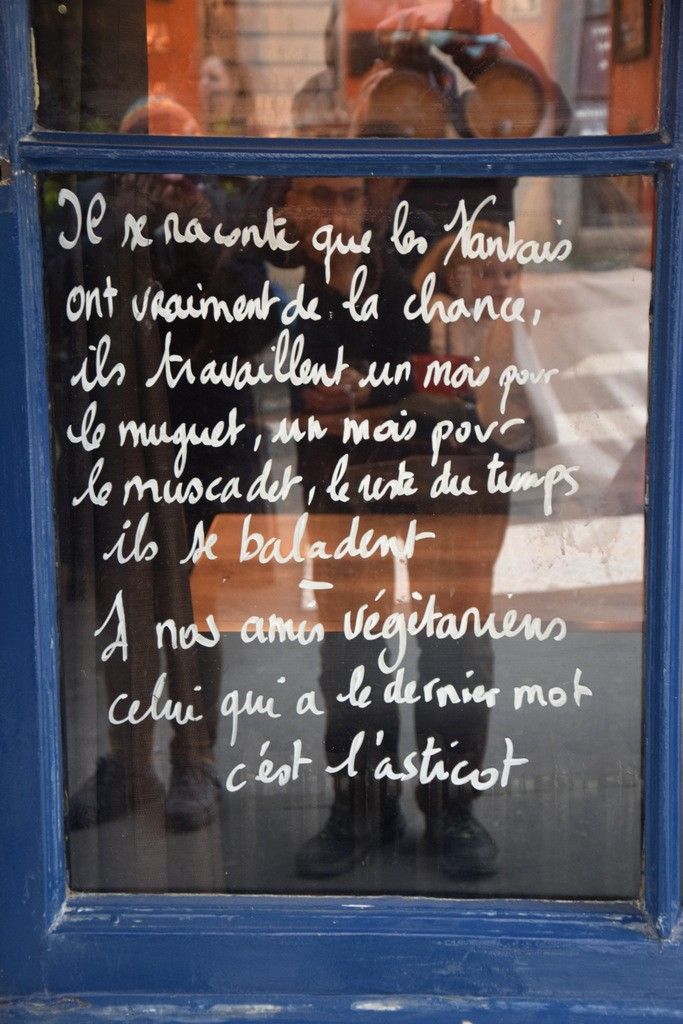 Il se raconte que les Nantais
ont vraiment de la chance,
ils travaillent un mois pour
le muguet, un mois pour
le muscadet, le reste du temps
ils se baladent
–
A nos amis végétariens
celui qui a le dernier mot
c'est l'asticot